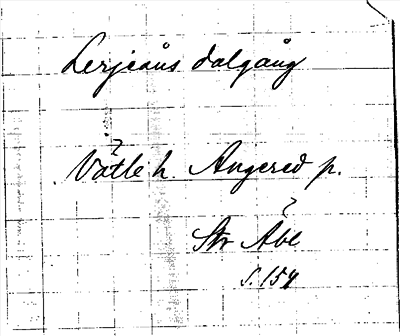 Lerjeåns dalgång
?
Vättle h. Angered p.
?
Str Äbl
s. 154